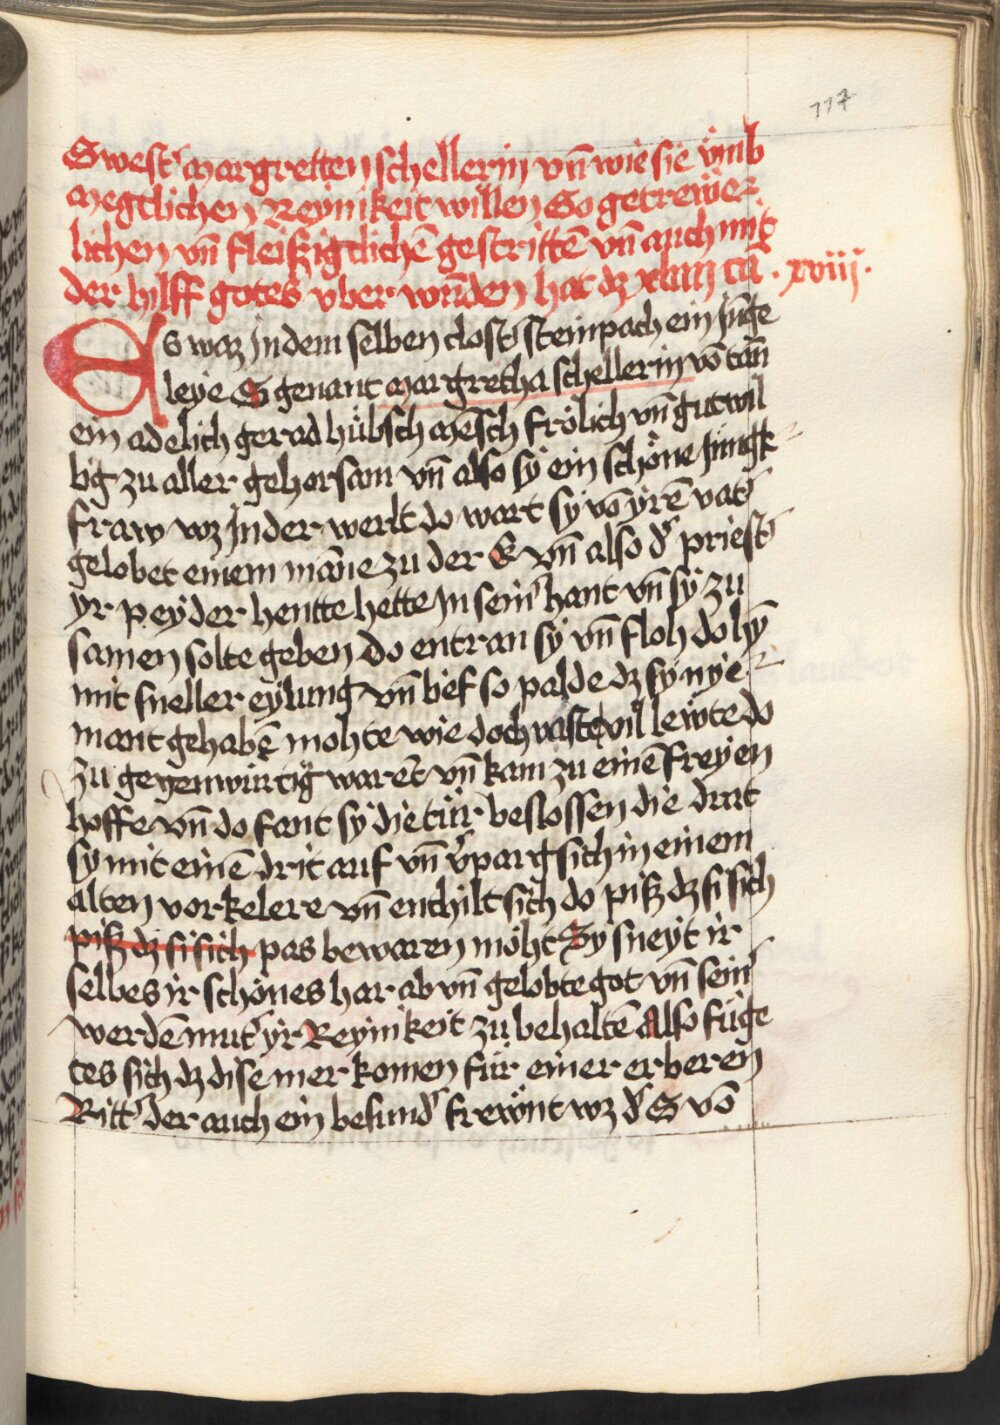 117
Swest' margretten schellerin vn̄ wie sie vmb
megtlichen Reynikeit willen So getrewe-
lichen vn̄ fleißigtlichē gestrittē vn̄ auch mit
der hilff gotes vber wūden hat dz xviij ca . xviij .
ES waz Jn dem selben clost' steinpach ein Jūge
leye S genant margretha schellerin vō tān
ein adelich gerad hübsch mēsch frölich vn̄ gutwil
lig zu aller gehorsam vn̄ also sy ein schöne Jungk-
fraw wz Jn der werlt do wart sy vō yrē vat'
gelobet einem māne zu der E vn̄ also d' priest'
yr peyder hentte hette Jn sein' hant vn̄ sy zu
samen solte geben Do entran sy vn̄ floh do hȳ
mit sneller eylung vn̄ lief so palde dz sy nye-
mant gehabē mohte wie doch vaste vil lewte do
zu gegenwürtig warēt vn̄ kam zu einē freyen
hoffe vn̄ do fant sy die tür beslossen die drat
sy mit einē drit auf vn̄ v'parg sich in einem
alten vorkelere vn̄ enthilt sich do piß dz si sich
piß dz si sich pas bewaren möht Sy sneyt ir
selbes ir schönes har ab vn̄ gelobte got vn̄ sein'
werdē mut' yr Reynikeit zu behaltē Also füge
tes sich dz dise mer komen für einer erberen
Ritt' der auch ein besund' frewnt wz d' S vō